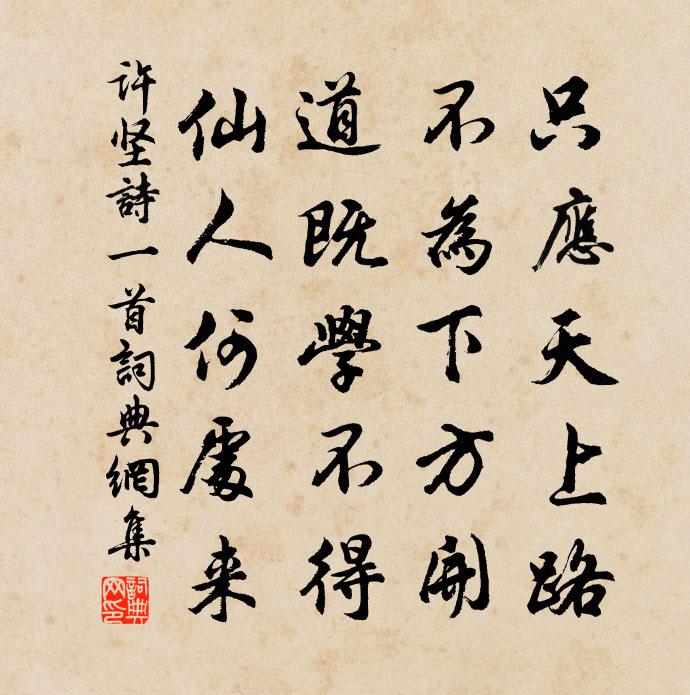 只應天上路
不為下方開
道既學不得
仙人何處来
许坚詩一首詞典網集
詞典网印